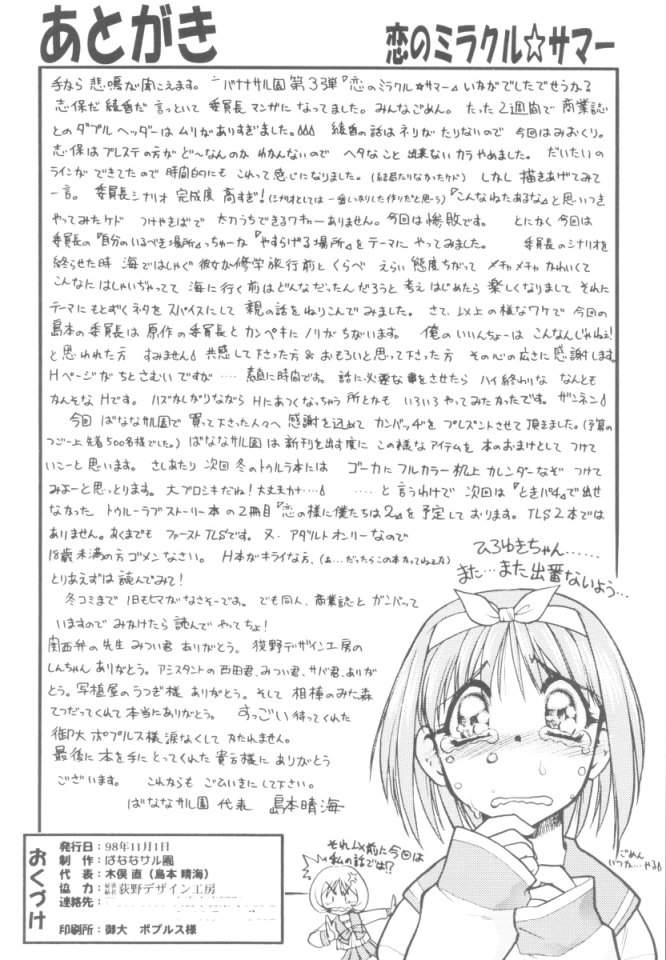 あとがき
恋のミラクル☆サマー
手から 悲鳴が聞こえます。バナナサル園 第33弾『恋のミラクル☆サマー』いかがでしたでせうか?
志保だ 綾香だ 言っといて 委員長 マンガに なってました。みんなごめん。たった2週間で 商業誌
とのダブルヘッダーは ムリがありすぎました。 綾香の話はネリがたりないので 今回はみおくり。
志保は プレステの方が ど〜なんのか わかんないので ヘタなこと 出来ない カラ やめました。 だいたいの
ラインができてたので 時間的にも これって感じになりました。(結局たりなかったケド) しかし 描きあげてみて
一言。 委員長シナリオ 完成度 高すぎ!(シナリオとしては 一番しっかりした作りだと思う)『こんなねたあるな』と思いつき
やってみたケド つけやきばで 太刀うちできるワキャーありません。今回は惨敗です。 とにかく 今回は
委員長の『自分のいるべき場所』っちゅーか『やすらげる場所』をテーマに やってみました。 委員長のシナリオを
終らせた時 海ではしゃぐ彼女が修学旅行前と くらべ えらい 態度ちがって メチャメチャ かわいくて
こんなに はしゃいじゃってて 海に行く前はどんなだったんだろうと 考えはじめたら 楽しくなりまして それに
テーマにもとずくネタを スパイスにして 親の話をねりこんでみました。 さて、以上の様なワケで 今回の
島本の委員長は 原作の委員長と カンペキに ノリがちがいます。 俺のいいんちょーは こんなんじゃねぇ!
と思われた方 すみません 共感して下さった方& おもろいと思って下さった方 その心の広さに感謝します。
Hページが ちとさむいですが‥‥ 素直に時間です。 話に必要な事をさせたら ハイ終わりな なんとも
かんそなHです。 ハズかしがりながら Hにあつくなっちゃう 所とかも いろいろやってみたかったです。ザンネン
今回 ばななサル園で 買って下さった人々へ 感謝を込めて カンバッヂを プレゼントさせて 頂きました。(予算の
つごー上 先着500名様でした。) ばななサル園は 新刊を出す度に この様なアイテムを 本のおまけとして つけて
いこーと思います。 さしあたり 次回 冬のトゥルラ本には ゴーカに フルカラー 机上 カレンダーなぞ つけて
みよーと思っとります。大ブロシキだね! 大丈夫カナ…… ……と言うわけで 次回は『ときパチ』で出せ
なかった トゥルーラブストーリー本の2冊目『恋の様に僕たちは2』を予定しております。TLS2本では
ありません。あくまでも ファーストTLSです。 又、アダルトオンリーなので
18歳未満の方 ゴメンなさい。 H本がキライな方、(ぁ…だったらこの本カッてねぇな)
とりあえずは 読んでみて!
冬コミまで 1日もヒマがなさそーです。 でも同人、商業誌と ガンバッて
いますので みかけたら 読んで やってちょ!
関西弁の先生 みつい君 ありがとう。 荻野デザイン工房の
しんちゃん ありがとう。アシスタントの 西田君、みつい君、サバ君、ありが
とう。写植屋のうつぎ様 ありがとう。そして 相棒のみた森
てつだってくれて 本当にありがとう。 すっごい 待ってくれた
御大 ポプルス様 涙なくして かたれません。
最後に 本を手に とってくれた 貴方様に ありがとう
ございます。 これからも ごひいきに して下さい。
ばななサル園 代表 島本晴海
ひろゆきちゃん……
また…また出番ないよう…
それ以前に今回は
私の話では!?
ごめん
いつか…やる
おくづけ
発行日:98年11月1日
制 作:ばななサル園
代 表:木俣 直(島本 晴海)
協 力:荻野デザイン工房
連絡先:
印刷所:御大 ポプルス様